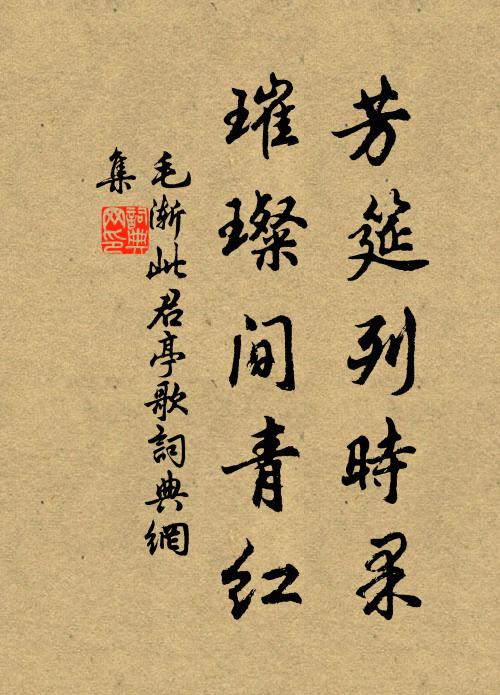 芳筵列時果
璀璨間青紅
毛漸此君亭歌詞典網
集
詞典
网印